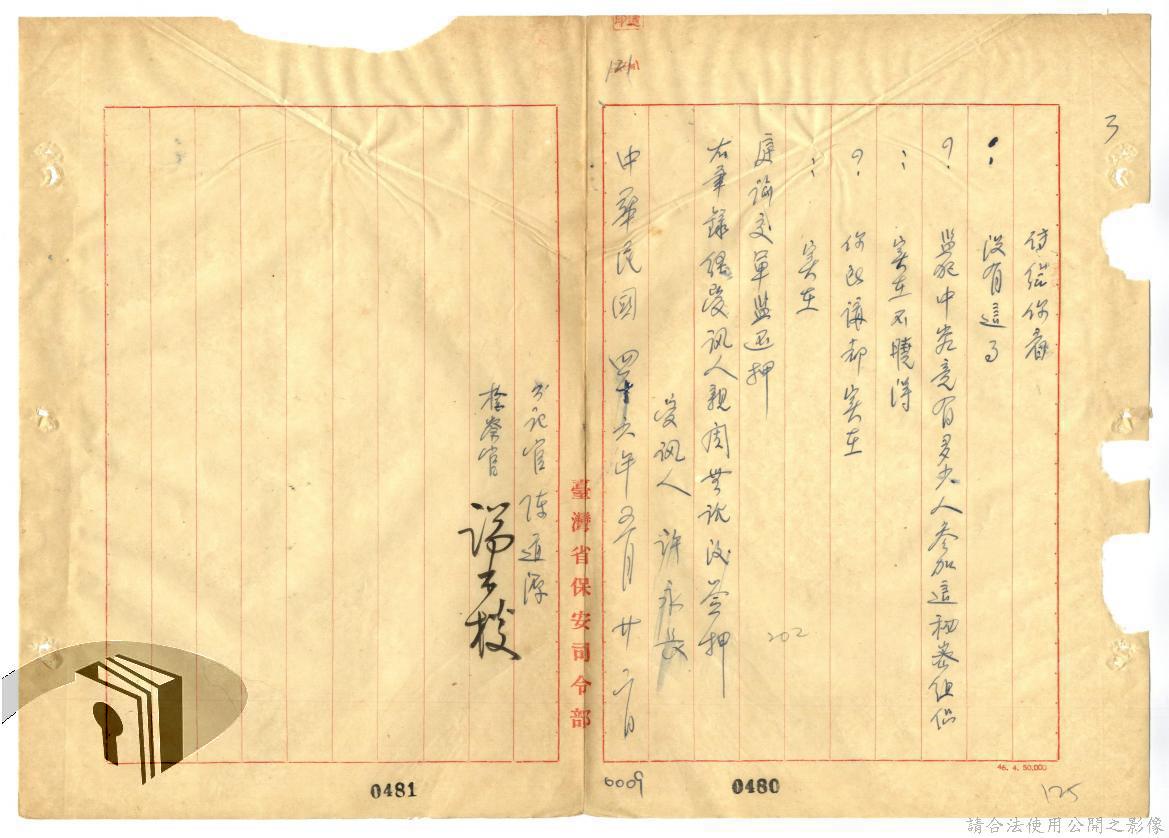 傳給你看
：沒有這事
？監獄中究竟有多少人參加這祕密組織
：實在不曉得
？你所講都實在
：實在
庭諭交軍監還押
右筆錄經受訊人親閱無訛後簽押
受訊人 許永長
中華民國四十六年五月廿二日
書記官 陳道源
檢察官
臺灣省保安司令部
202
0009
0480
0481
125
46. 4. 50.000
請合法使用公開之影像